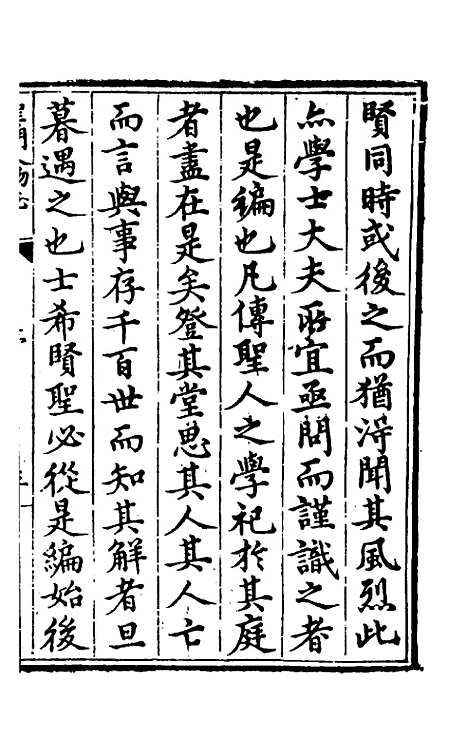 賢同時或後之而猶淂聞其風烈此
亦學士大夫所宜亟問而謹識之者
也是編也凡傳聖人之學祀於其庭
者盡在是矣登其堂思其人其人亡
而言與事存千百世而知其解者旦
暮遇之也士希賢聖必從是編始後